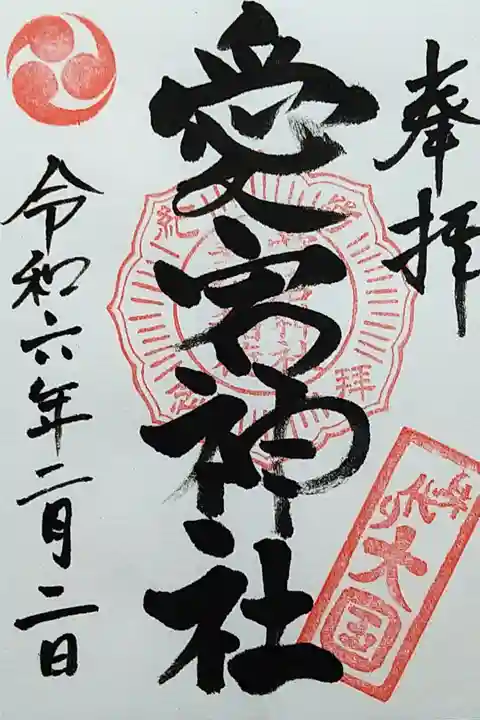 奉拝
愛宕神社
令和六年二月二日
拝
紀念
大国